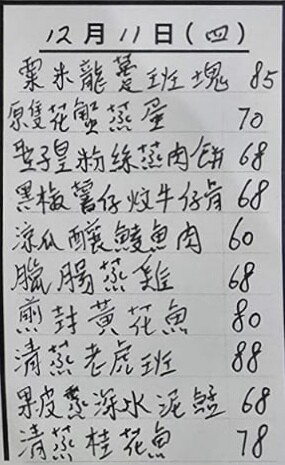 12月11日(四)
粟米龍躉班塊 85
原隻花蟹蒸蛋 70
聖子皇粉絲蒸肉餅 68
黑椒薯仔炆牛仔骨 68
涼瓜釀鯪魚肉 60
臘腸蒸雞 68
煎封黃花魚 80
清蒸老虎班 88
果皮蒸深水泥鯭 68
清蒸桂花魚 78